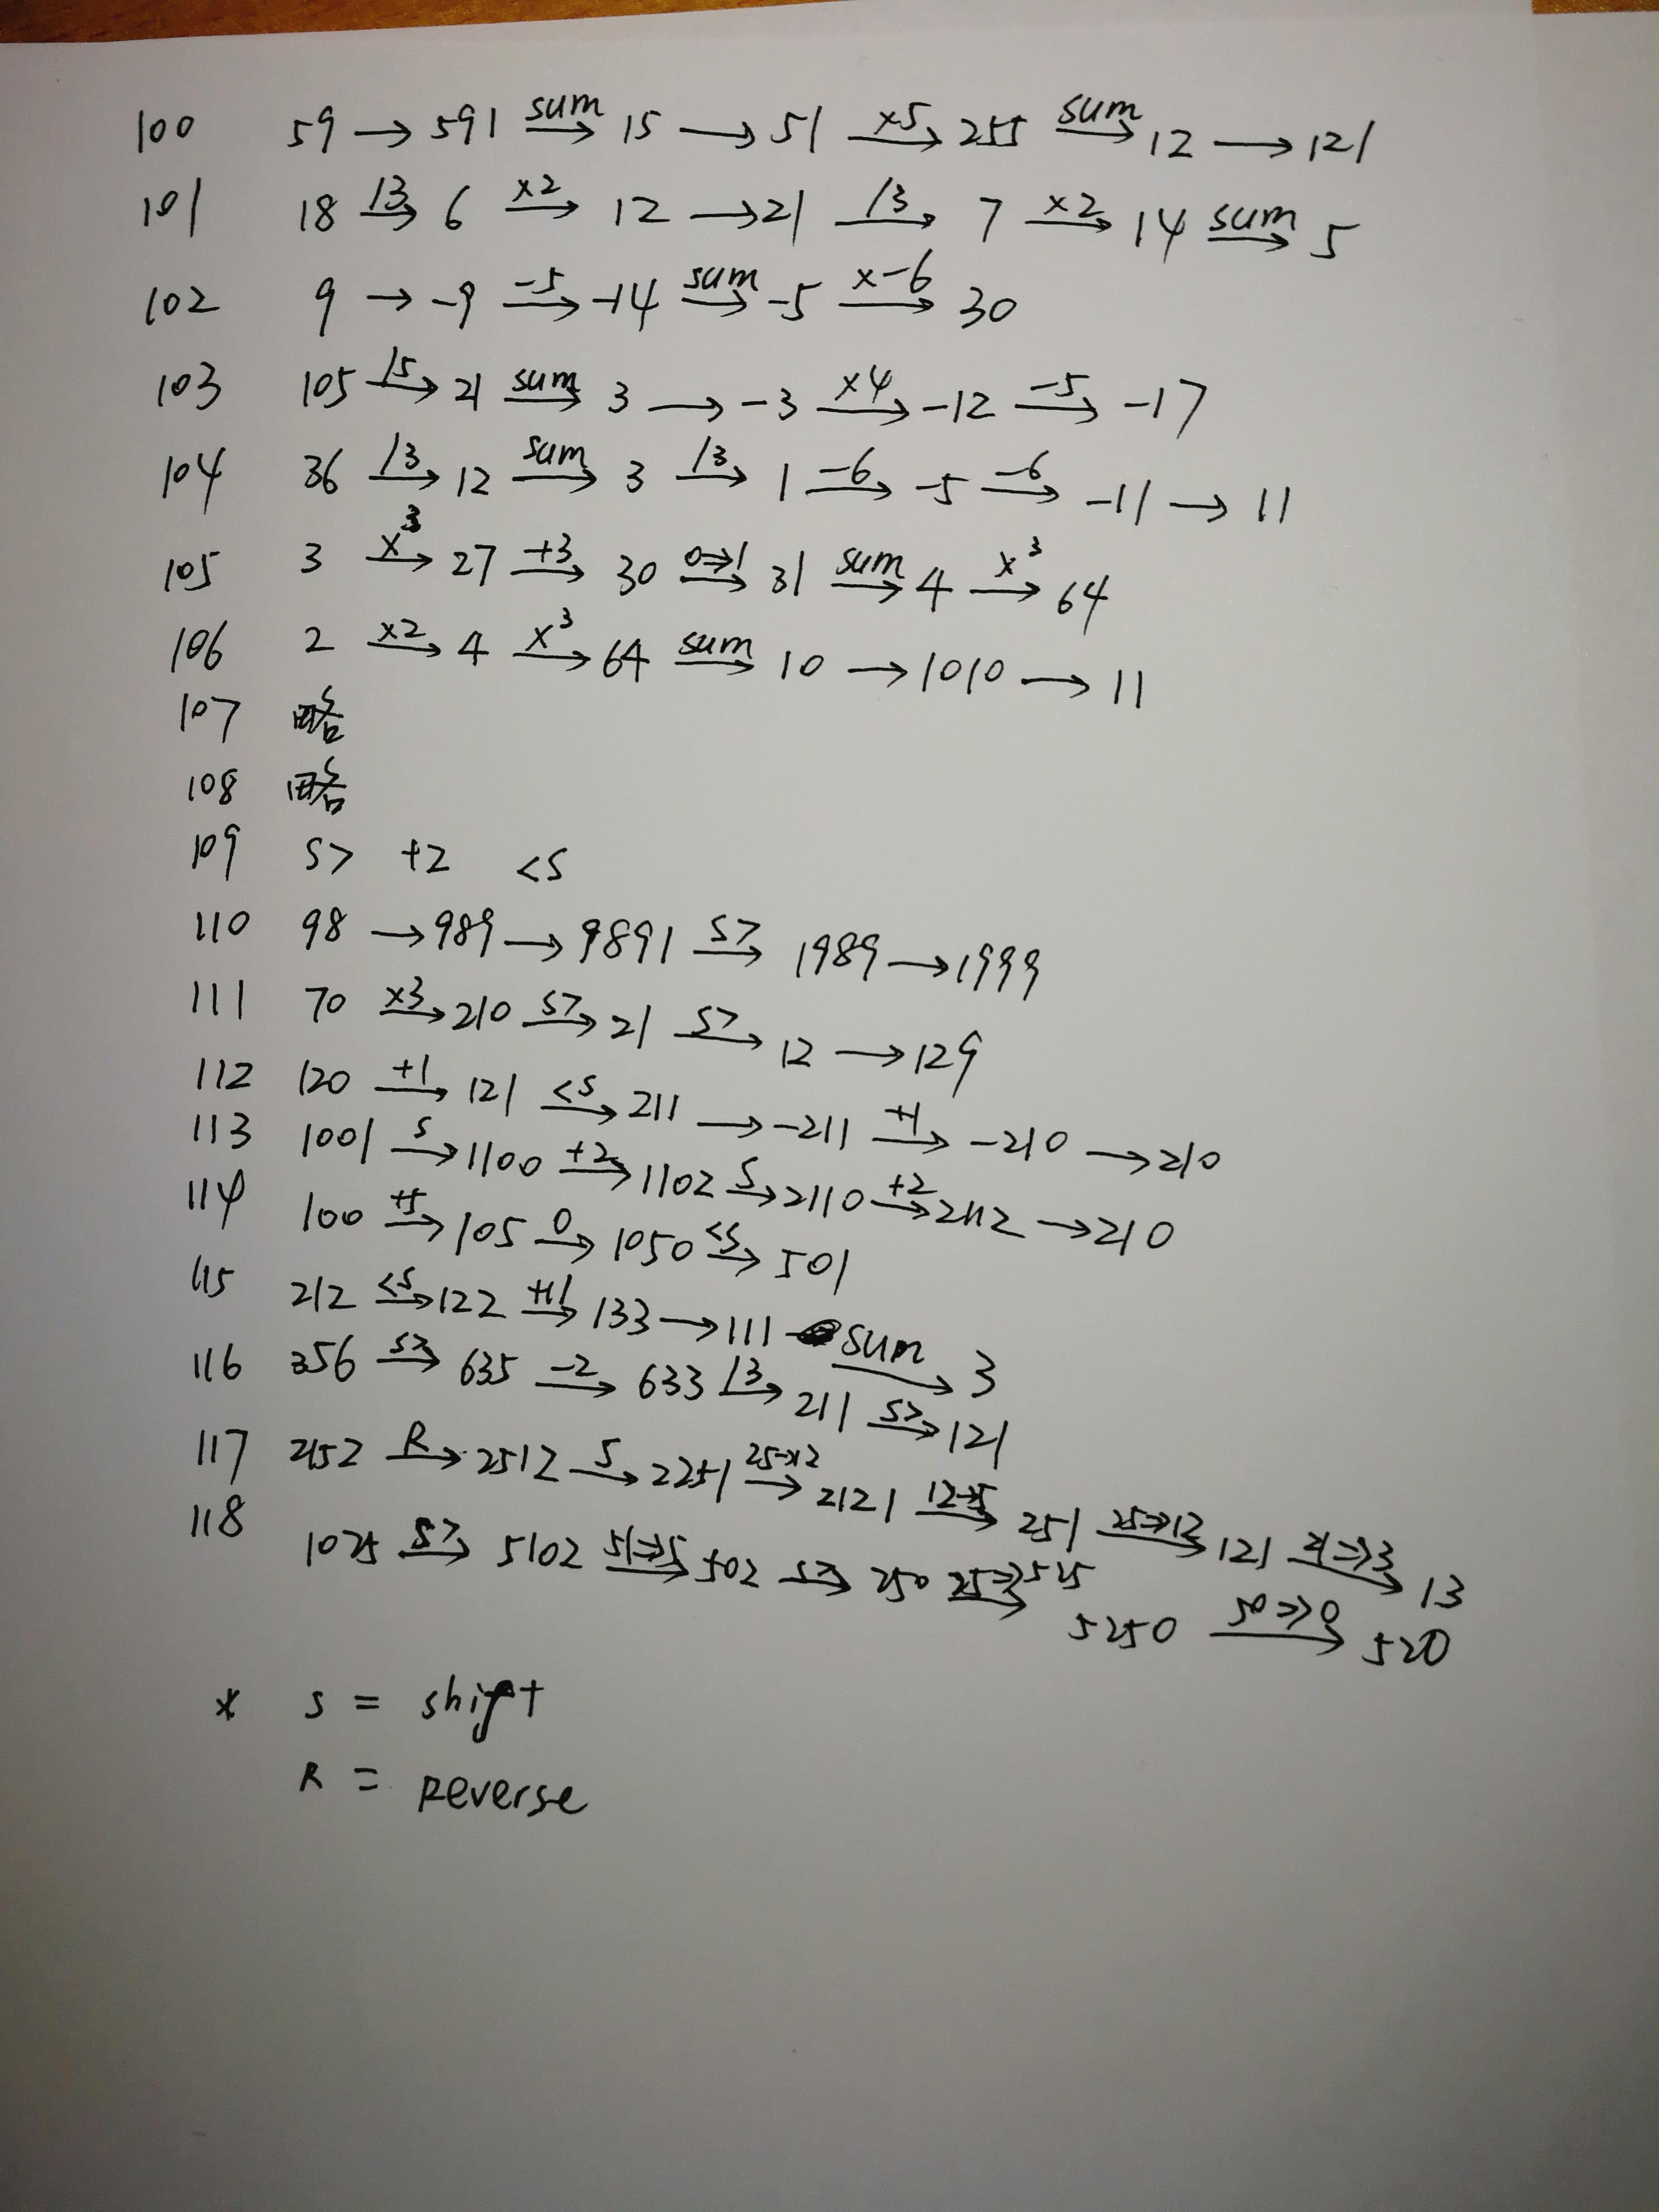 100 59 → 591 sum→ 15 → 51 ×5→ 255 sum→ 12 → 121
101 18 /3→ 6 ×2→ 12 → 21 /3→ 7 ×2→ 14 sum→ 5
102 9 → -9 -5→ -14 sum→ -5 ×-6→ 30
103 105 /5→ 21 sum→ 3 → -3 ×4→ -12 -5→ -17
104 36 /3→ 12 sum→ 3 /3→ 1 -6→ -5 -6→ -11 → 11
105 3 x³→ 27 +3→ 30 0⇒1→ 31 sum→ 4 x³→ 64
106 2 ×2→ 4 x³→ 64 sum→ 10 → 1010 → 11
107 略
108 略
109 S> +2 <S
110 98 → 989 → 9891 S>→ 1989 → 1999
111 70 ×3→ 210 S>→ 21 S>→ 12 → 129
112 120 +1→ 121 <S→ 211 → -211 +1→ -210 → 210
113 1001 S→ 1100 +2→ 1102 S→ 2110 +2→ 2112 → 210
114 100 +5→ 105 0→ 1050 <S→ 501
115 212 <S→ 122 +11→ 133 → 111 sum→ 3
116 356 S>→ 635 -2→ 633 /3→ 211 S>→ 121
117 2152 R→ 2512 S→ 2251 25⇒12→ 2121 12⇒5→ 251 25⇒12→ 121 21⇒3→ 13
118 1025 S>→ 5102 51⇒5→ 502 S>→ 250 25⇒525→ 5250 50⇒0→ 520
* S = shift
R = Reverse